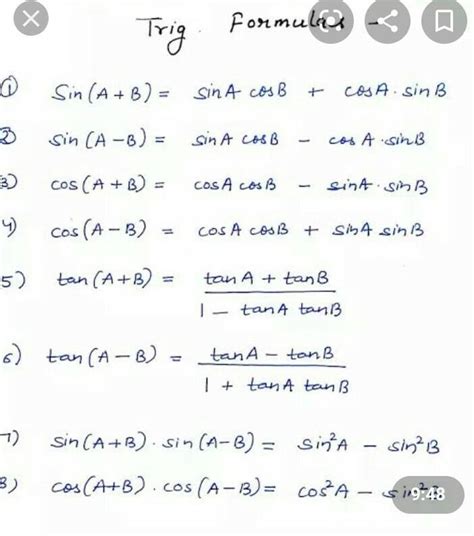 Trig. Formulas -
① Sin(A+B) = sinA cosB + cosA·sinB
2) sin(A-B) = sinA cosB - cosA·sinB
3) cos(A+B) = cosA cosB - sinA·sinB
4) cos(A-B) = cosA cosB + sinA sinB
5) tan(A+B) = tanA + tanB / 1 - tanA tanB
6) tan(A-B) = tanA - tanB / 1 + tanA tanB
7) sin(A+B)·sin(A-B) = sin²A - sin²B
8) cos(A+B)·cos(A-B) = cos²A - sin²
9:48